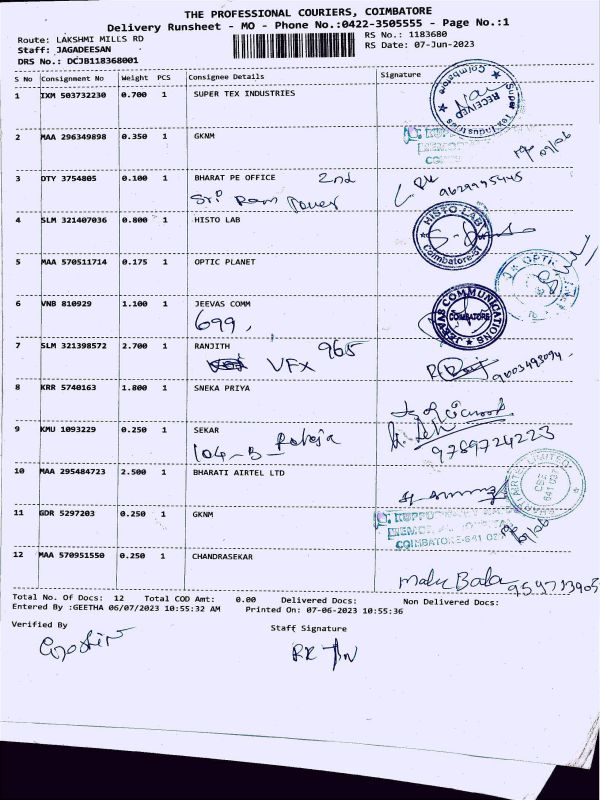 THE PROFESSIONAL COURIERS, COIMBATORE
Delivery Runsheet - MO - Phone No.:0422-3505555 - Page No.:1
Route: LAKSHMI MILLS RD
RS No.: 1183680
Staff: JAGADEESAN
RS Date: 07-Jun-2023
DRS No.: DCJB118368001
S No Consignment No Weight PCS Consignee Details Signature
1 IXM 503732230 0.700 1 SUPER TEX INDUSTRIES
Super Tex Industries
Coimbatore
RECEIVED
2 MAA 296349898 0.350 1 GKNM
3 DTY 3754805 0.100 1 BHARAT PE OFFICE 2nd
Sri Ram Tower
9629995445
4 SLM 321407036 0.800 1 HISTO LAB
HISTO LAB
Coimbatore-37
5 MAA 570511714 0.175 1 OPTIC PLANET
6 VNB 810929 1.100 1 JEEVAS COMM
699,
JEEVAS COMMUNICATIONS
COIMBATORE
7 SLM 321398572 2.700 1 RANJITH 965
VFX
9003493094
8 KRR 5740163 1.800 1 SNEKA PRIYA
9 KMU 1093229 0.250 1 SEKAR
104-B- Raheja
9789724223
10 MAA 295484723 2.500 1 BHARATI AIRTEL LTD
AIRTEL LIMITED
11 GDR 5297203 0.250 1 GKNM
COIMBATORE-641
12 MAA 570951550 0.250 1 CHANDRASEKAR
Malu Bala
Total No. Of Docs: 12 Total COD Amt: 0.00 Delivered Docs: Non Delivered Docs:
Entered By :GEETHA 06/07/2023 10:55:32 AM Printed On: 07-06-2023 10:55:36
Verified By
Staff Signature